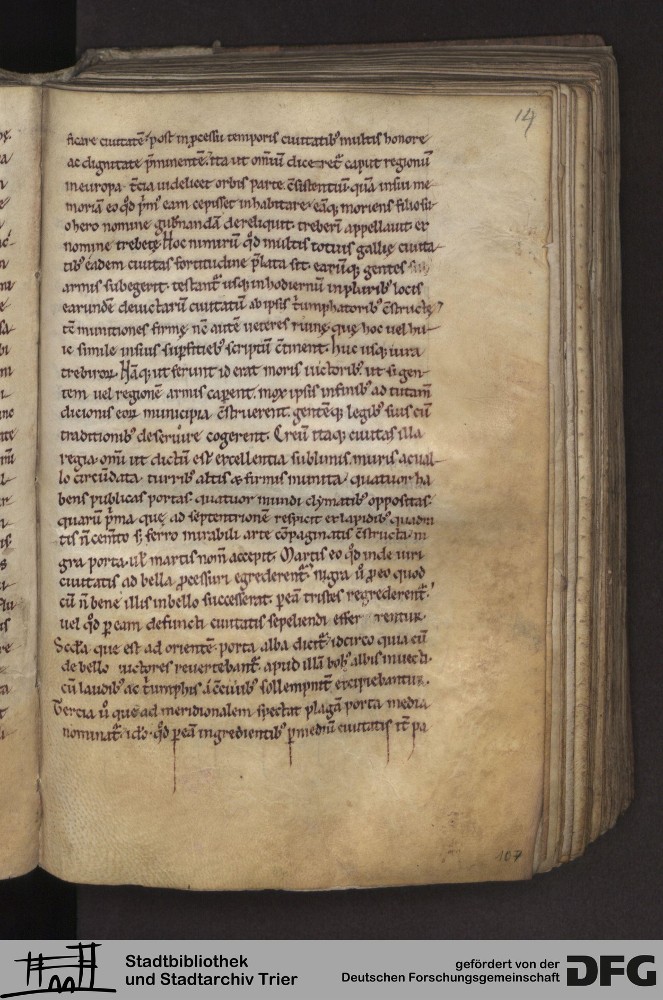 14
ficare ciuitatē. post in ꝓcessu temporis ciuitatibꝰ multis honore
ac dignitate p̄minentē. ita ut omniū diceretᷣ caput regionū
in europa tc̄ia uidelicet orbis parte c̄sistentiū. quā in sui me
moriā eo qđ pͥmꝰ eam cepisset inhabitare. eāqꝫ moriens filio su
o hero nomine gubnandā dereliquit. treberī appellauit. ex
nomine trebetę. Hoc nimirū qđ multis totius gallię ciuita
tibꝰ eadem ciuitas fortitudine p̄lata sit. earūqꝫ gentes
armis subegerit. testantᷣ usqꝫ in hodiernū in pluribꝰ locis
earundē deuictarū ciuitatū ab ipsis tͥumphatoribꝰ c̄structę
tē munitiones firmę. nc̄ aute ueteres ruinę. quę hoc uel hu
ic simile in suis suꝑficiebꝰ scriptū c̄tinent. huc usqꝫ iura
trebiroꝝ. Nāqꝫ ut ferunt id erat moris uictoribꝰ. ut si gen
tem uel regionē armis caperent. mox ipsis in finibꝰ ad tutam
dicionis eoꝝ municipia c̄struerent. gentēqꝫ legibꝰ suis cū
traditionibꝰ deseruire cogerent. Creuit itaqꝫ ciuitas illa
regia. omī ut dictū est excellentia sublimis. muris ac ual
lo circūdata. turribꝰ altis & firmis munita. quatuor ha
bens publicas portas. quatuor mundi clymatibꝰ oppositas.
quarū pͥma quę ad septentrionē respicit ex lapidibꝰ quadra
tis ñ cem̄to sꝫ ferro mirabili arte cōpaginatis c̄structa. ni
gra porta. uł martis nom̄ accepit. Martis eo qđ inde uiri
ciuitatis ad bella ꝓcessuri egrederentᷣ. nigra ů ꝓ eo quod
cū ñ bene illis in bello successerat. ꝑ eā tristes regrederentᷣ.
uel qđ ꝑ eam defuncti ciuitatis sepeliendi efferrentur.
Scđa que est ad orientē. porta alba dicitᷣ. idcirco quia cū
de bello uictores reuertebantᷣ. apud illā bobꝰ albis inuecti.
cū laudibꝰ ac tͥumphis a c̄ciuibꝰ sollempnitͣ excipiebantur.
Tercia ů que ad meridionalem spectat plagā porta media
nominatᷣ. idō. qđ ꝑ eā ingredientibꝰ ꝑ mediū ciuitatis it̄ pa
107
Stadtbibliothek
und Stadtarchiv Trier
gefördert von der
Deutschen Forschungsgemeinschaft
DFG